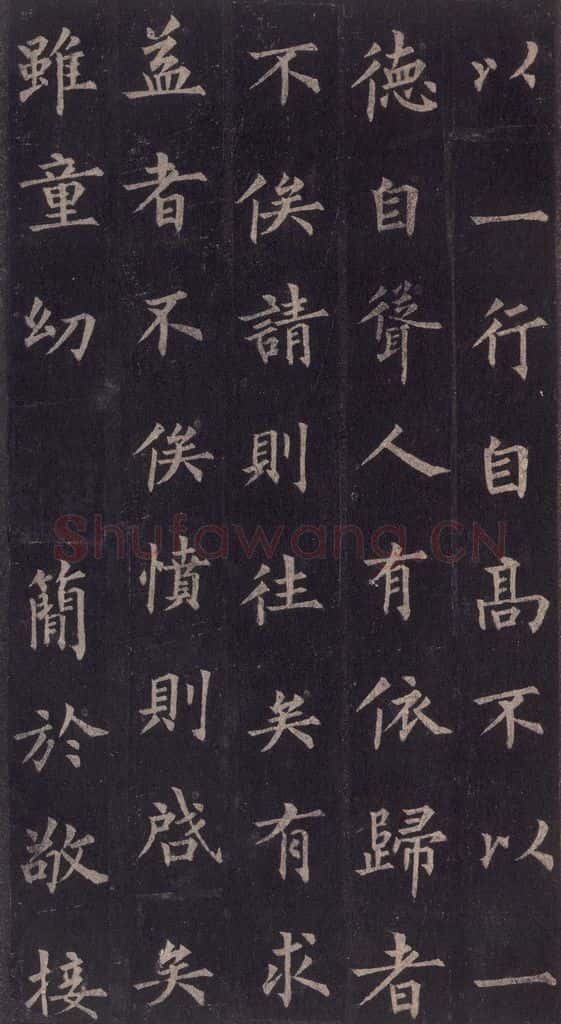 以一行自髙不以一
德自聳人有依歸者
不俟請則往矣有求
益者不俟憤則啓矣
雖童幼 簡於敬接
Shufawang.CN